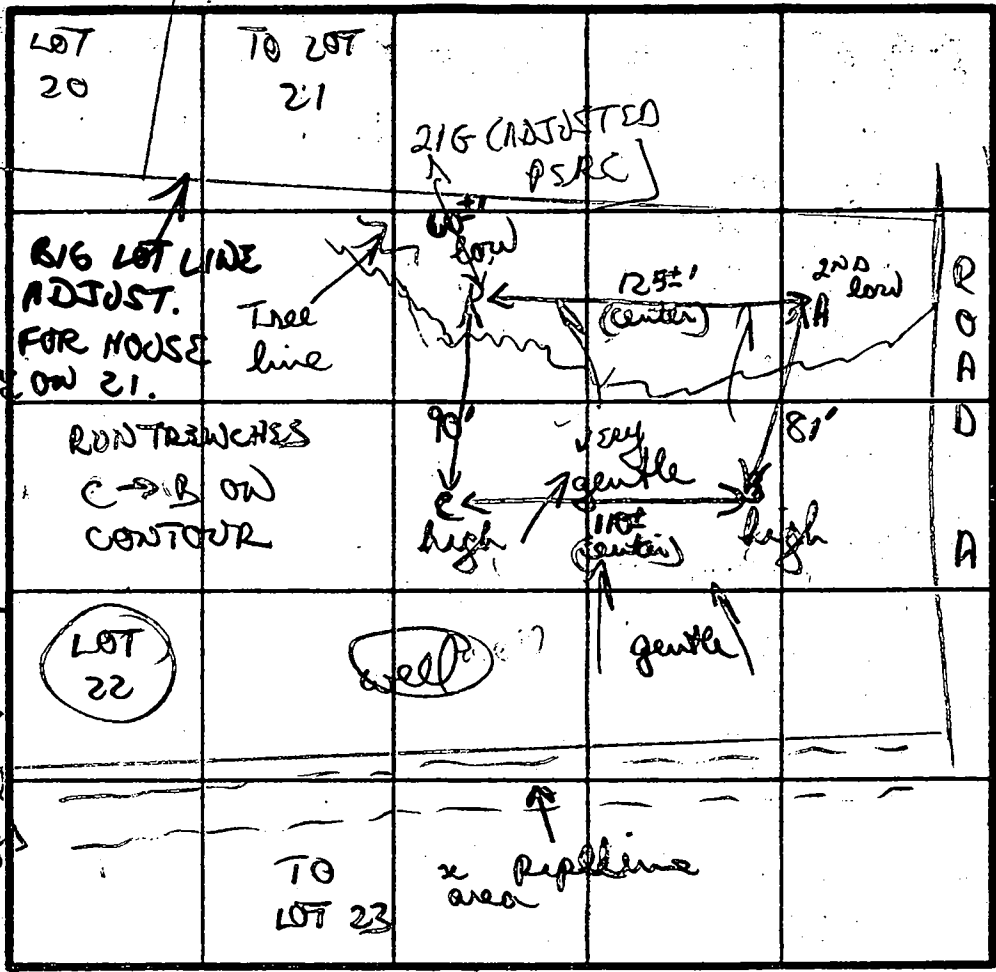 LOT
20
TO LOT
21
21G (ADJUSTED
60±'
low
BIG LOT LINE
ADJUST.
FOR HOUSE
ON 21.
Tree
line
125±'
(center)
2ND
low
A
ROAD A
RUN TRENCHES
C → B ON
CONTOUR
90'
very
gentle
81'
C
high
110±
(center)
high
LOT
22
well
gentle
TO
LOT 23
area
pipeline